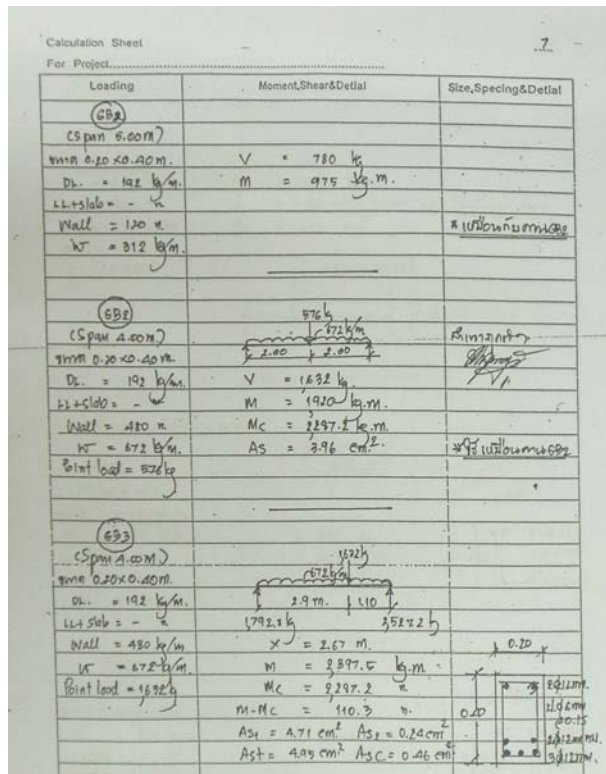 Calculation Sheet
7
For Project
Loading Moment,Shear&Detial Size,Specing&Detial
GB2
(Span 5.00m)
ขนาด 0.20 x0.40 m. V = 780 kg
DL. = 192 kg/m. M = 975 kg.m.
LL+slab = - "
Wall = 120 "
W = 312 kg/m.
GB2 576 kg
(Span 4.00m.) 672 kg/m
ขนาด 0.20 x0.40 m. 2.00 2.00
DL. = 192 kg/m. V = 1,632 kg
LL+slab = - M = 1920 kg.m.
Wall = 480 " Mc = 2,297.2 kg.m.
W = 672 kg/m. As = 3.96 cm2.
Point load = 576 kg
GB3
(Span 4.00M) 1,632
ขนาด 0.20x0.40m. 672 kg/m
DL. = 192 kg/m. 2.9 m. 1.10
LL+ slab = - " 1,792.8 kg 2,527.2
Wall = 480 kg/m X = 2.67 m. 0.20
W = 672 kg/m. M = 2,397.5 kg.m
Point load = 1,632 kg Mc = 2,297.2 "
M-Mc = 110.3 "
As1 = 4.71 cm2 As2 = 0.24 cm2 2ø12mm.
Ast = 4.95 cm2 Asc = 0.46 cm2 3ø12mm.